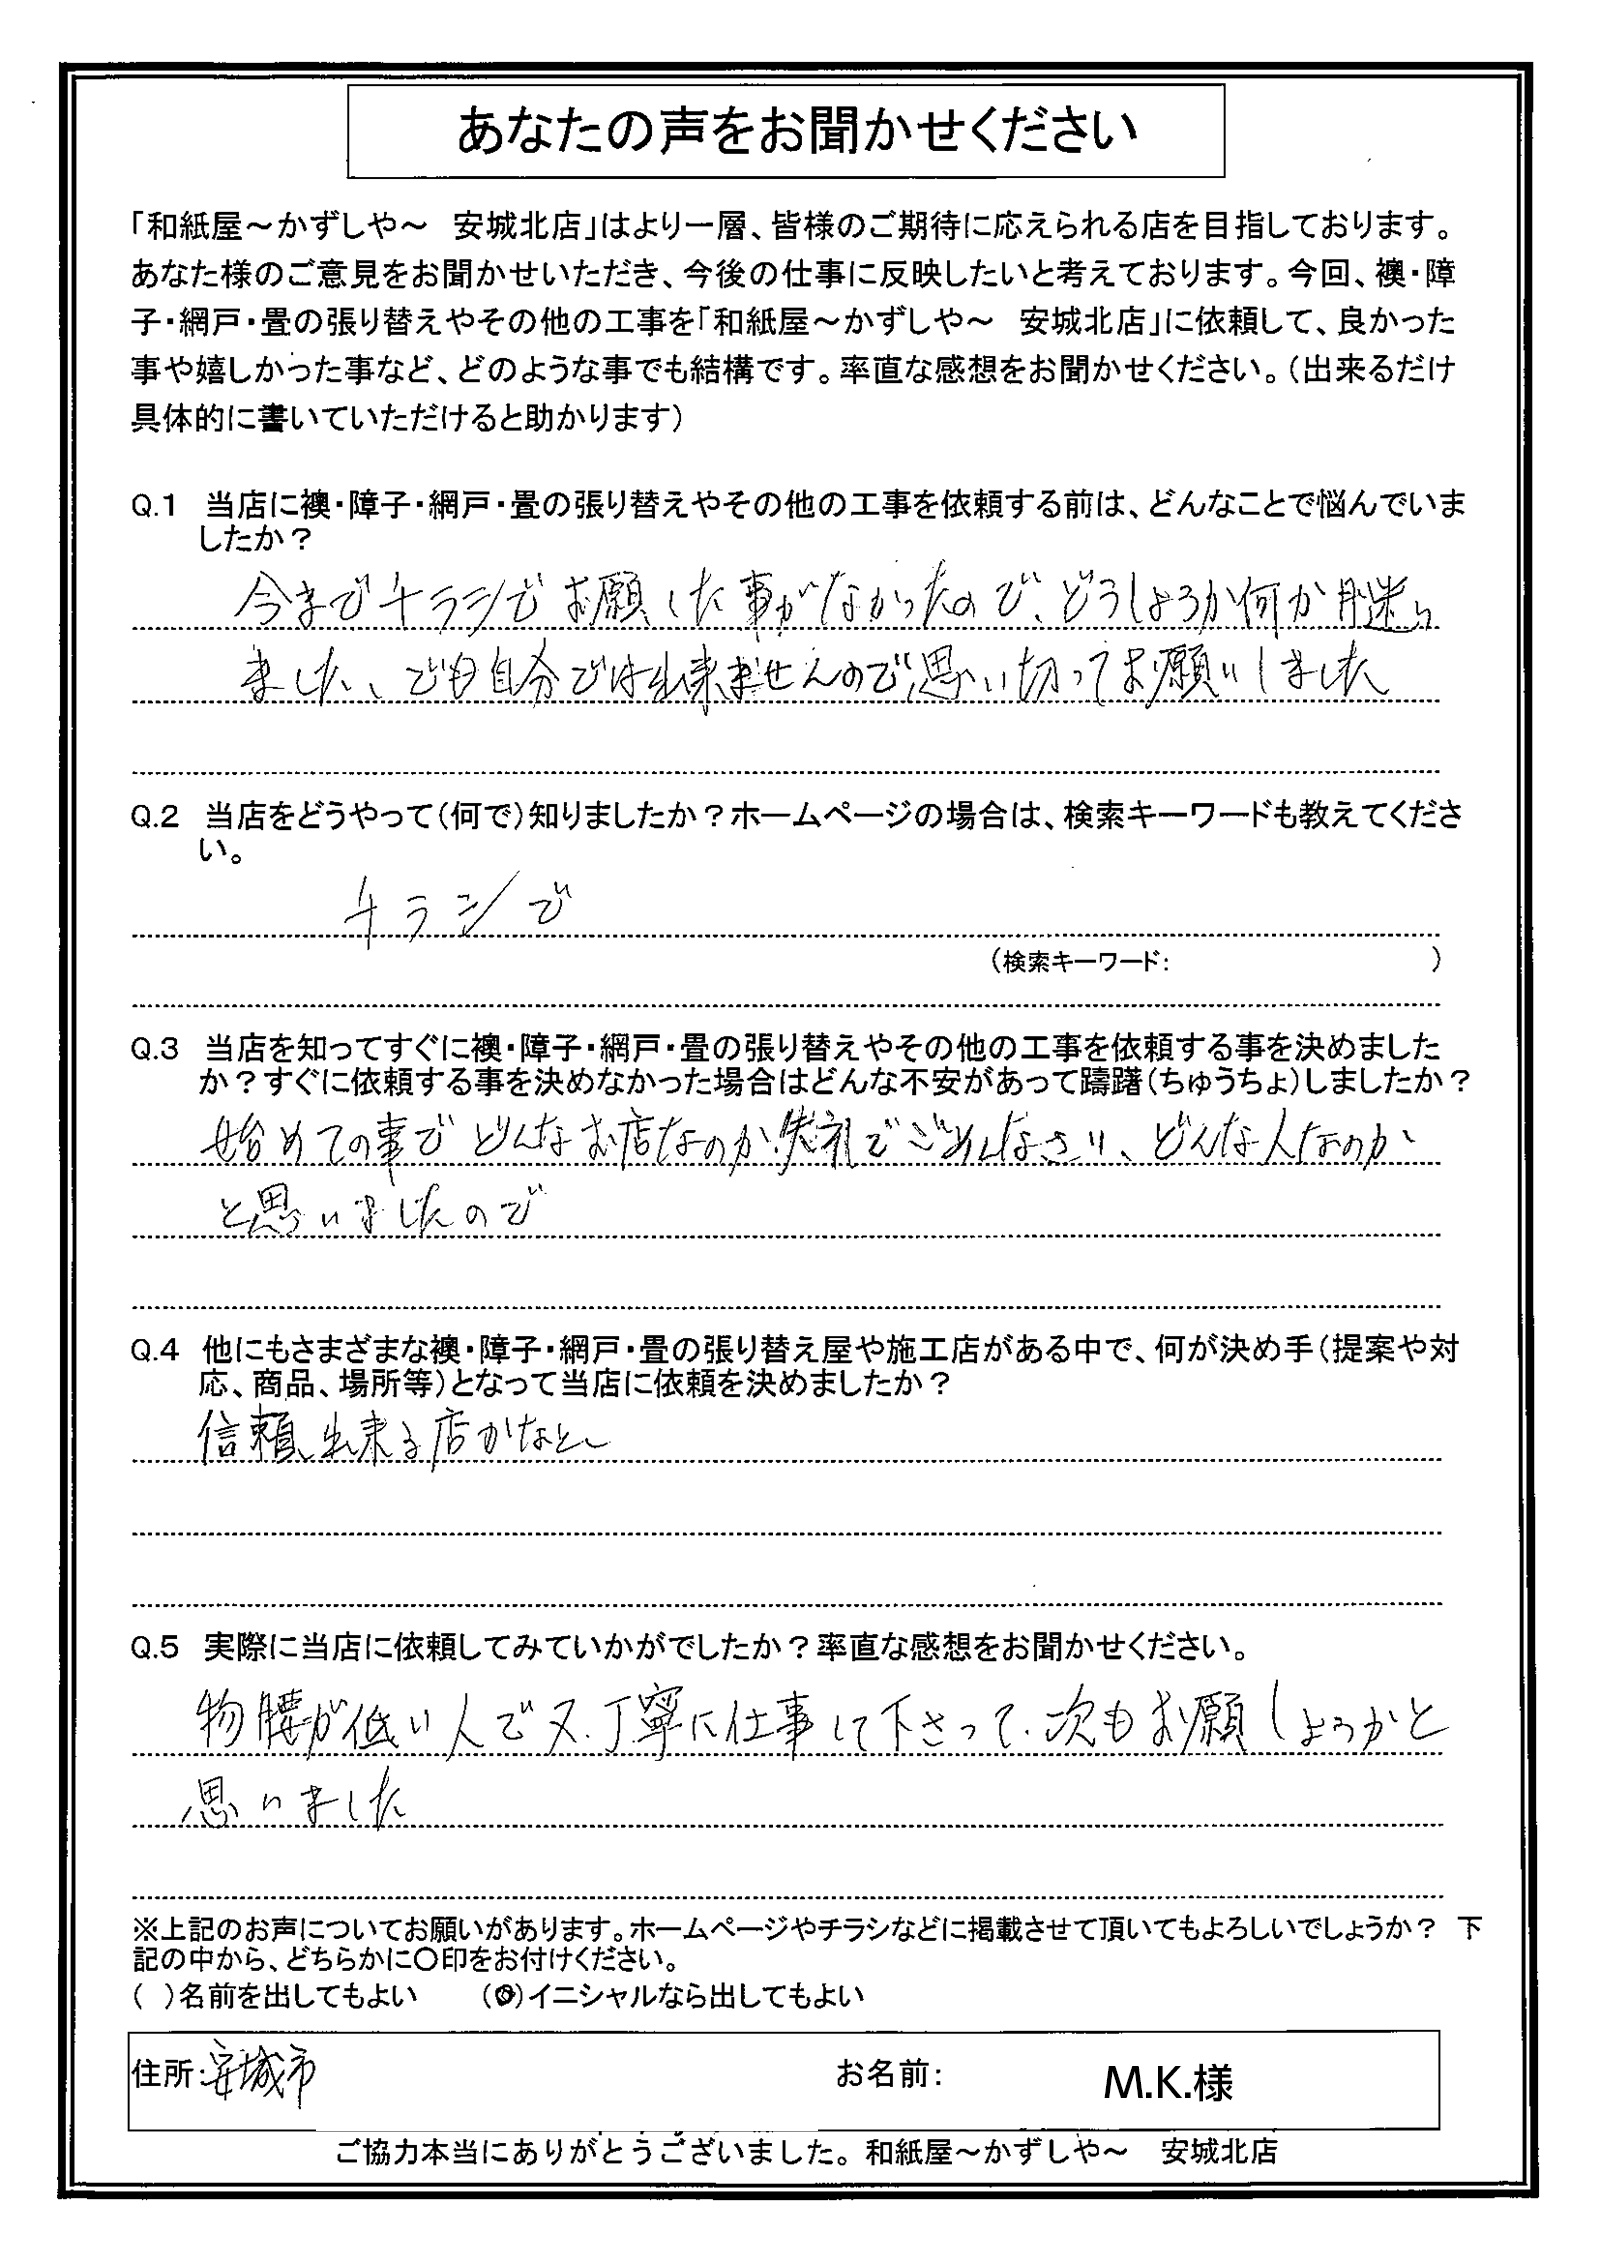 あなたの声をお聞かせください
「和紙屋～かずしや～　安城北店」はより一層、皆様のご期待に応えられる店を目指しております。
あなた様のご意見をお聞かせいただき、今後の仕事に反映したいと考えております。今回、襖・障
子・網戸・畳の張り替えやその他の工事を「和紙屋～かずしや～　安城北店」に依頼して、良かった
事や嬉しかった事など、どのような事でも結構です。率直な感想をお聞かせください。（出来るだけ
具体的に書いていただけると助かります）
Q.1　当店に襖・障子・網戸・畳の張り替えやその他の工事を依頼する前は、どんなことで悩んでいま
したか？
今までチラシでお願した事がなかったので、どうしようか何か月迷い
ました、でも自分では出来ませんので思い切ってお願いしました
Q.2　当店をどうやって（何で）知りましたか？ホームページの場合は、検索キーワードも教えてくださ
い。
チラシで
（検索キーワード：　　　　　　　　）
Q.3　当店を知ってすぐに襖・障子・網戸・畳の張り替えやその他の工事を依頼する事を決めました
か？すぐに依頼する事を決めなかった場合はどんな不安があって躊躇（ちゅうちょ）しましたか？
始めての事でどんなお店なのか、失礼でごめんなさい、どんな人なのか
と思いましたので
Q.4　他にもさまざまな襖・障子・網戸・畳の張り替え屋や施工店がある中で、何が決め手（提案や対
応、商品、場所等）となって当店に依頼を決めましたか？
信頼出来る店かなと、
Q.5　実際に当店に依頼してみていかがでしたか？率直な感想をお聞かせください。
物腰が低い人で又、丁寧に仕事して下さって、次もお願しようかと
思いました
※上記のお声についてお願いがあります。ホームページやチラシなどに掲載させて頂いてもよろしいでしょうか？　下
記の中から、どちらかに〇印をお付けください。
（　）名前を出してもよい　　（〇）イニシャルなら出してもよい
住所：安城市　　お名前：　M.K.様
ご協力本当にありがとうございました。和紙屋～かずしや～　安城北店